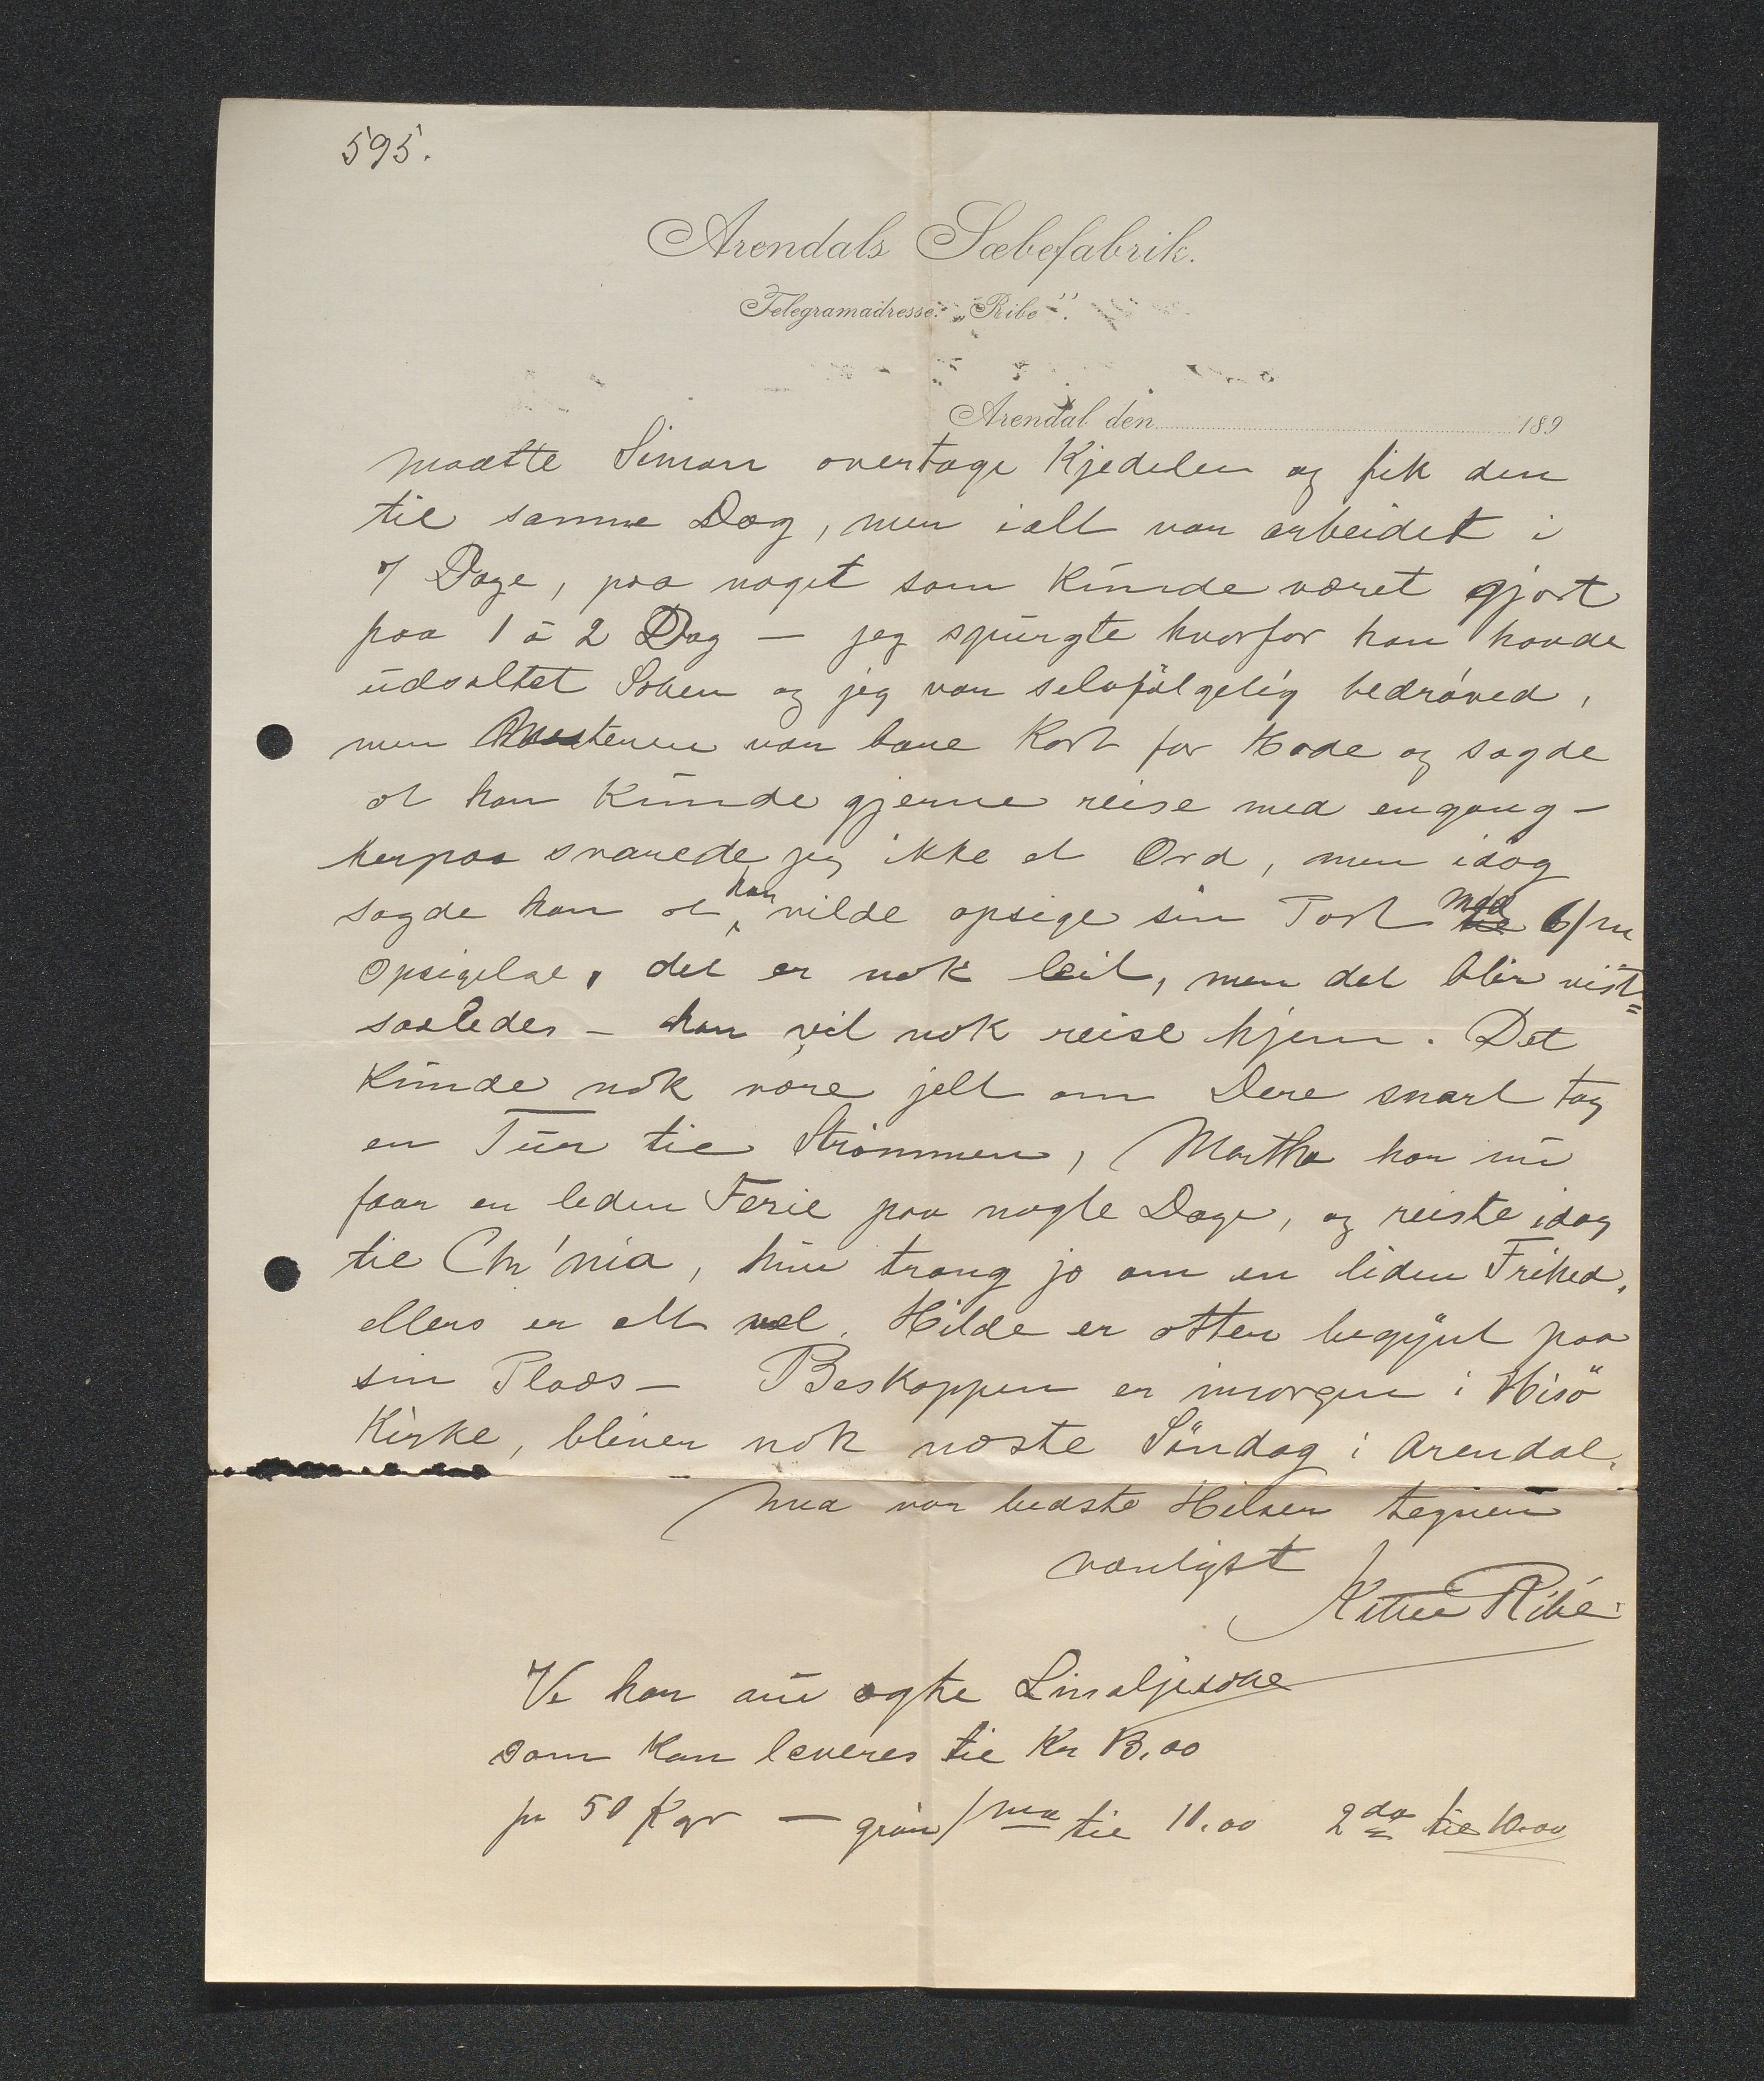 595.
Arendals Sæbefabrik.
Telegramadresse: „Ribe".
Arendal den 189
maatte Simon overtage Kjedelen og fik den
til samme Dag, men ialt var arbeidet i
7 Dage, paa noget som kunde været gjort
paa 1 à 2 Dag — jeg spurgte hvorfor han havde
udsaltet Soben og jeg var selvfølgelig bedrøved,
men Mesteren var bare kort for Hode og sagde
at han kunde gjerne reise med engang —
herpaa svarede jeg ikke et Ord, men idag
sagde han at han vilde opsige sin Post med 6/m
Opsigelse, det er nok leit, men det blir vist
saaledes — han vil nok reise hjem. Det
kunde nok være jelt om Dere snart tog
en Tur til Strømmen, Martha har nu
faar en leden Ferie paa nogle Dage, og reiste idag
til Chr'nia, hun trang jo om en liden Frihed,
ellers er alt vel. Hilde er atter begynt paa
sin Plads — Beskoppen er imorgen i Hisö
Kirke, bliver nok næste Søndag i Arendal.
Med vor bedste Hilsen tegner
venligst
Ribe
Vi har nu ægte Linoljesæbe
som kan leveres til Kr 13.00
pr 50 Kgr — grøn 1ma til 11.00 2da til 10.00